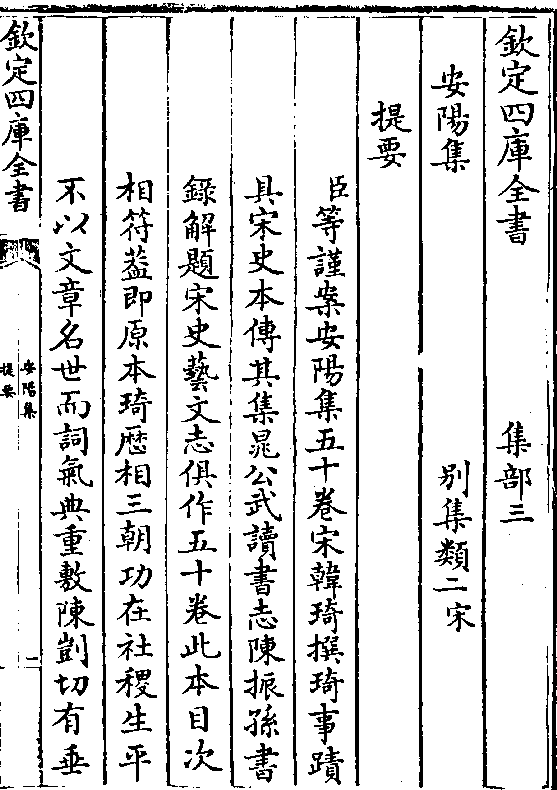 欽定四庫全書　集部三
安陽集　別集類二宋
提要
臣等謹案安陽集五十卷宋韓琦撰琦事蹟
具宋史本傳其集晁公武讀書志陳振孫書
錄解題宋史藝文志俱作五十卷此本目次
相符葢即原本琦歷相三朝功在社稷生平
不以文章名世而詞氣典重敷陳剴切有垂
欽定四庫全書
安陽集
提要
一